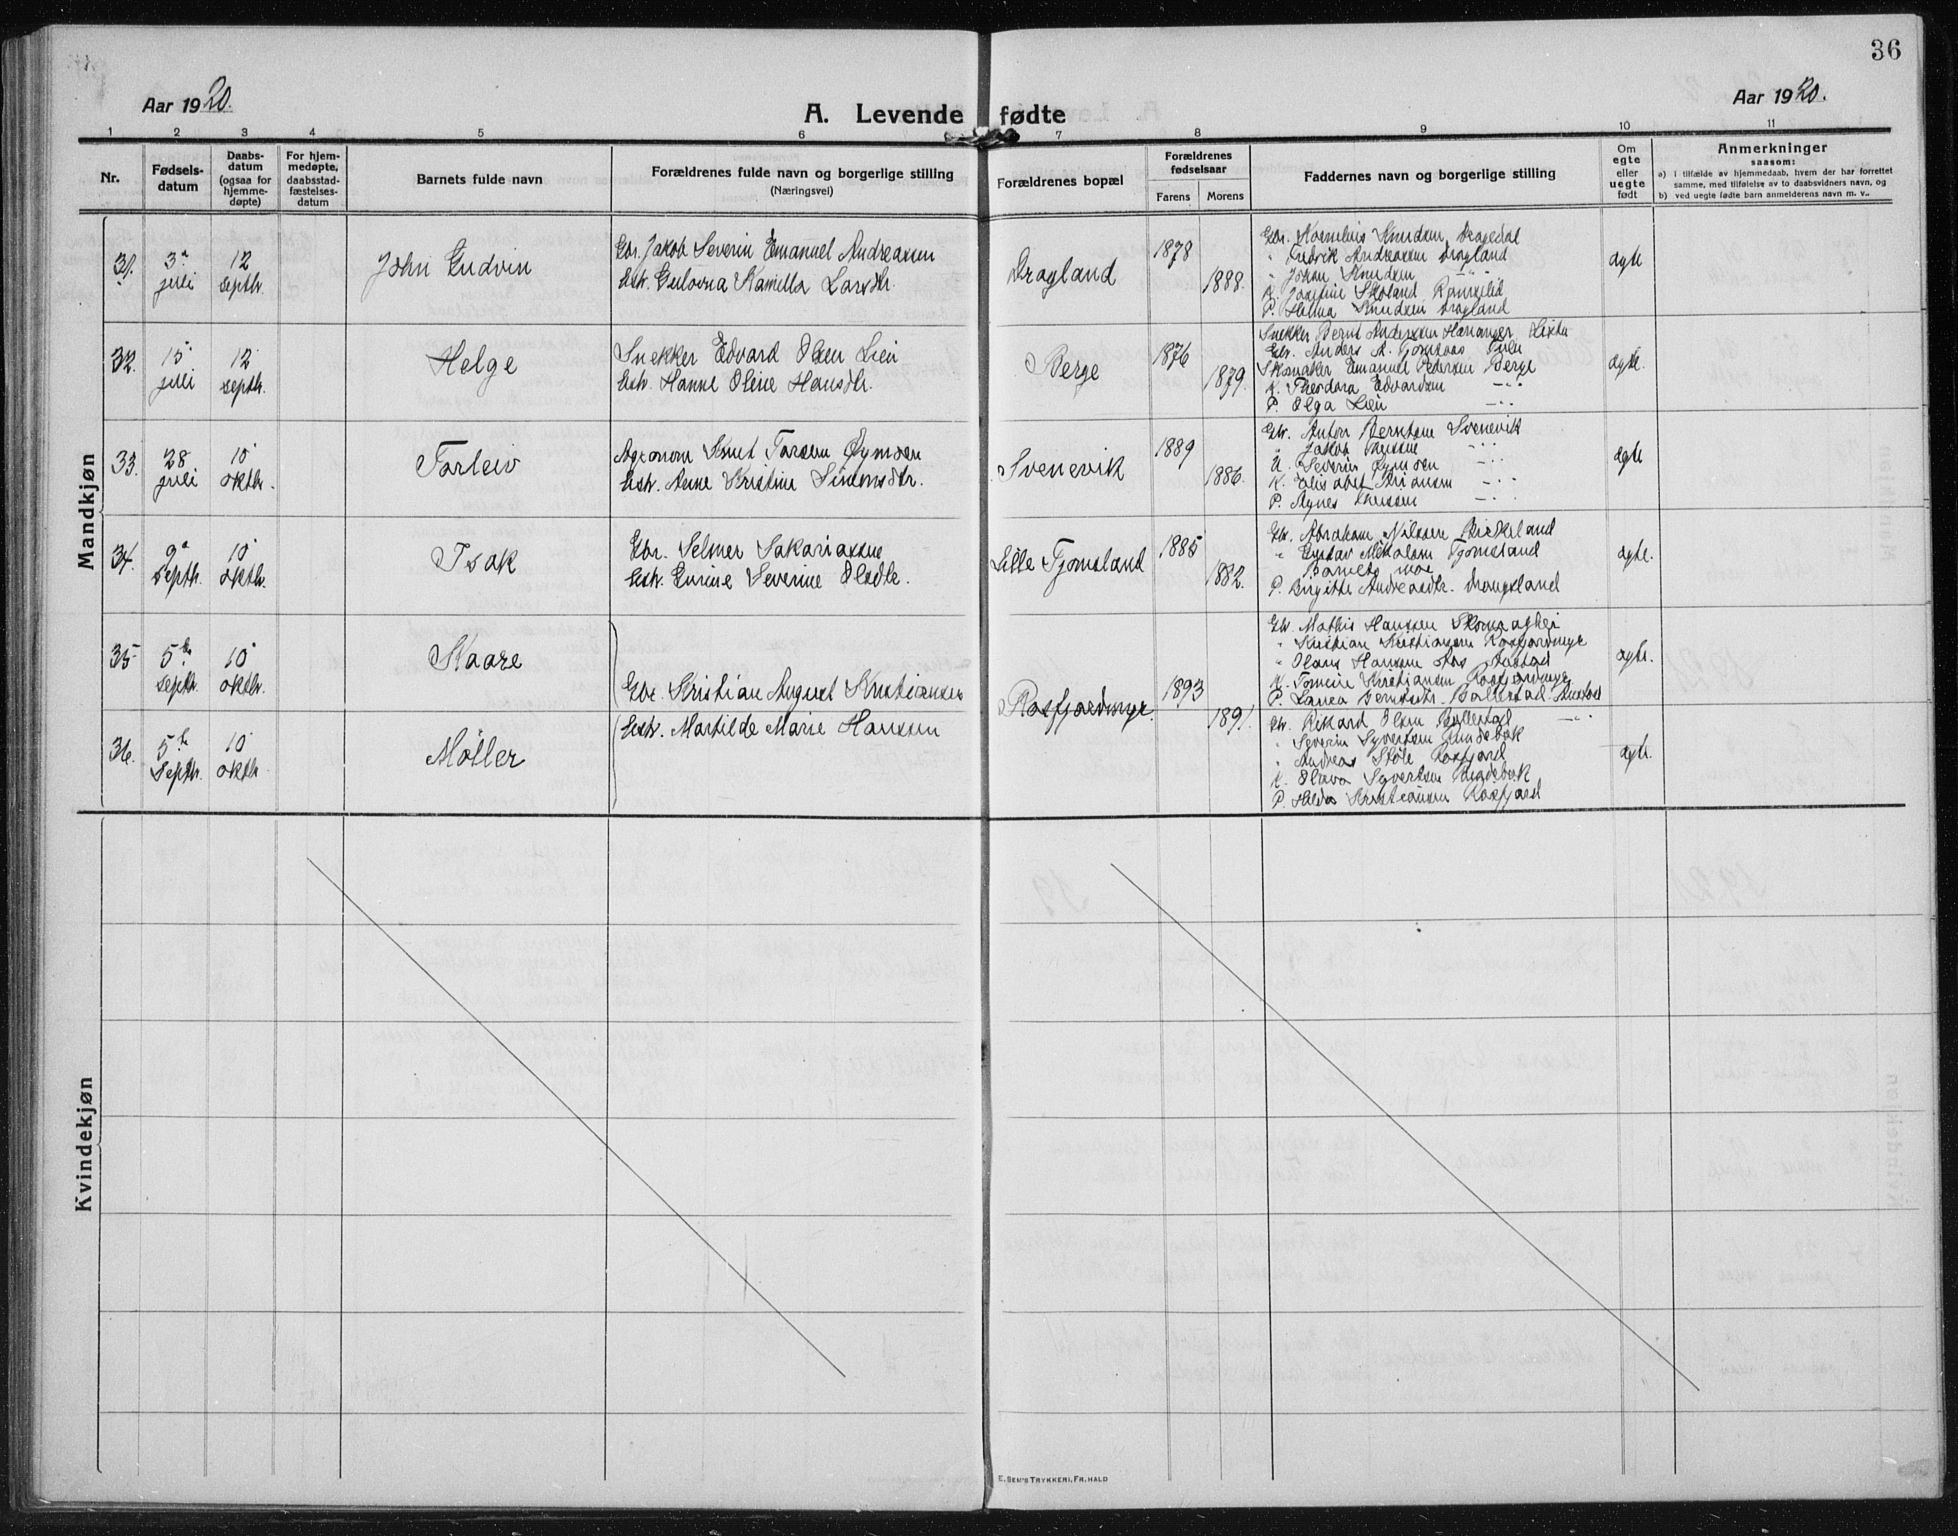 36
Aar 1920.
A. Levende fødte
Aar 1920.
1 2 3 4 5 6 7 8 9 10 11
Nr.
Fødsels-
datum
Daabs-
datum
(ogsaa for
hjemme-
døpte)
For hjem-
medøpte,
daabsstad-
fæstelses-
datum
Barnets fulde navn
Forældrenes fulde navn og borgerlige stilling
(Næringsvei)
Forældrenes bopæl
Forældrenes
fødselsaar
Farens Morens
Faddernes navn og borgerlige stilling
Om
egte
eller
uegte
født
Anmerkninger
saasom:
a) i tilfælde av hjemmedaab, hvem der har forrettet
samme, med tilføielse av to daabsvidners navn, og
b) ved uegte fødte barn anmelderens navn m. v..
Mandkjøn
31. 3 juli
12 septbr.
John Gudvin
Gbr. Jakob Severin Emanuel Andreassen
Hstr. Gulovna Kamilla Larsdtr.
Dragland
1878
1888.
Gbr. Kornelius Knudsen Dragedal
" Fredrik Andreassen Dragland
" Johan Knudsen -"-
K. Josefine Skoland
P. Helma Knudsen Dragland
ægte
32. 15 juli
12 septbr.
Helge
Snekker Edvard Olsen Lien
Hstr. Hanne Oline Hansdtr.
Berge
1876
1879.
Snekker Bernt Andersen
Gbr. Anders A. Tjomsaas
Skomaker Emanuel Pedersen Berge
K. Theodora Edvardsen -"-
P. Olga Lien -"-
ægte.
33. 28 juli
10 oktbr.
Torleiv
Agronom Knut Torsen Øymoen
Hstr. Anne Kristine Simonsdtr.
Svenevik
1889
1886.
Gbr. Anton Berntsen Svenevik
" Jakob -"-
U. Severin Øymoen -"-
K. Elisabet -"-
P. Agnes -"-
ægte
34. 9 Septbr.
10 oktbr.
Isak
Gbr. Selmer Sakariassen
Hstr. Gurine Severine Olsdtr.
Lille Tjomsland
1885
1882.
Gbr. Abraham Nilssen Birkeland
" Gustav Mikalsen Tjomsland
Barnets mor
P. Birgitte Andreasdtr. Drangsland
ægte.
35 5 septbr.
10 oktbr.
Kaare
Gbr. Kristian August Kristiansen
Rosfjordmyr.
1893
1891.
Gbr. Mathis Hanssen
" Kristian Kristiansen Rosfjordmyr
" Olaus Hanssen
K. Tomine Kristiansen Rosfjordmyr
P. Laura
ægte.
36. 5 Septbr.
10 oktbr.
Møller
Hstr. Martilde Marie Hanssen
Gbr. Rikard Olsen
" Severin Syvertsen
" Andreas Støle Rosfjord
K. Olava Syvertsen
P. Hilda Kristiansen Rosfjord
ægte.
Kvindekjøn
E. Sem's Trykkeri, Fr.hald